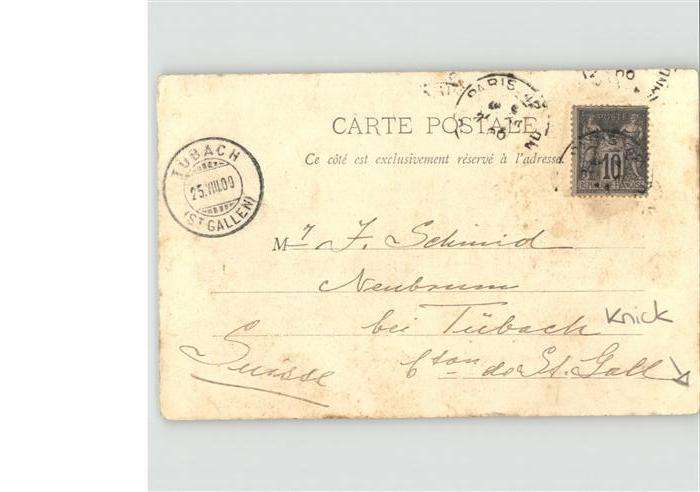 PARIS
CARTE POSTALE
Ce côté est exclusivement réservé à l'adresse.
10
TÜBACH
25.VIII.00
(ST GALLEN)
Mr J. Schmid
Neubrunn
bei Tübach
Knick
Suisse
Cton de St. Gall